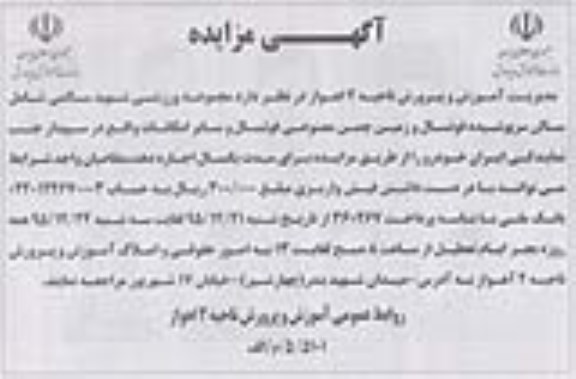 آگهی مزایده
مدیریت آموزش و پرورش ناحیه ۲ اهواز در نظر دارد مجموعه ورزشی شهید سالمی شامل
سالن سرپوشیده فوتسال و زمین چمن مصنوعی فوتسال و سایر امکانات واقع در سپیدار جنب
نمایندگی ایران خودرو را از طریق مزایده برای مدت یکسال اجاره دهد متقاضیان واجد شرایط
می توانند با در دست داشتن فیش واریزی مبلغ ۳۰۰/۰۰۰ ریال به حساب
بانک ملی با شناسه پرداخت ۳۶۰۲۶۷ از تاریخ شنبه ۹۵/۱۲/۲۱ لغایت سه شنبه ۹۵/۱۲/۲۴ همه
روزه بجز ایام تعطیل از ساعت ۸ صبح لغایت ۱۳ به امور حقوقی و املاک آموزش و پرورش
ناحیه ۲ اهواز به آدرس - میدان شهید بندر (چهارشیر) - خیابان ۱۷ شهریور مراجعه نمایند.
روابط عمومی آموزش و پرورش ناحیه ۲ اهواز
۵/۵۱۰۱/م/الف